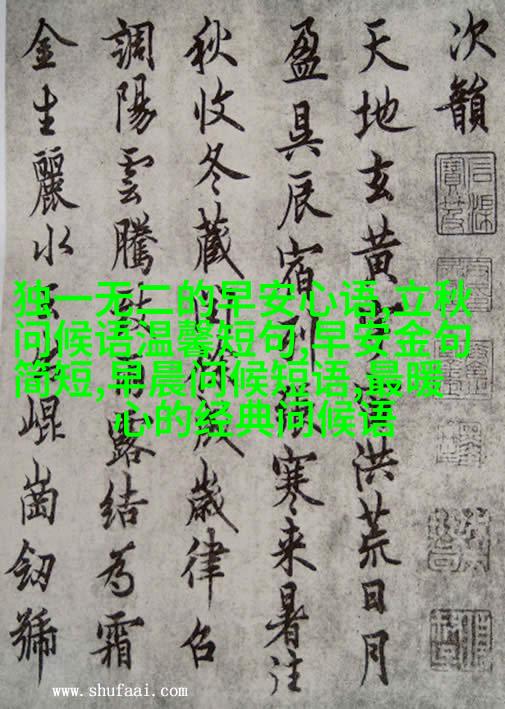 次韻
天地玄黃洪荒日月
盈昃辰宿列張寒来暑往
秋收冬藏閏餘成歲律召
調陽雲騰致雨露結為霜
金生麗水玉出崐崗劒號
独一无二的早安心语,立秋
问候语温馨短句,早安金句
简短,早晨问候短语,最暖
心的经典问候语
www.shufaai.com